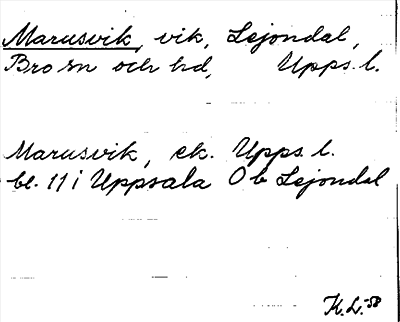 Marusvik, vik, Lejondal,
Bro sn och hd, Upps. l.
Marusvik, ek. Upps. l.
bl. 11 i Uppsala Ob Lejondal
K.L.-58